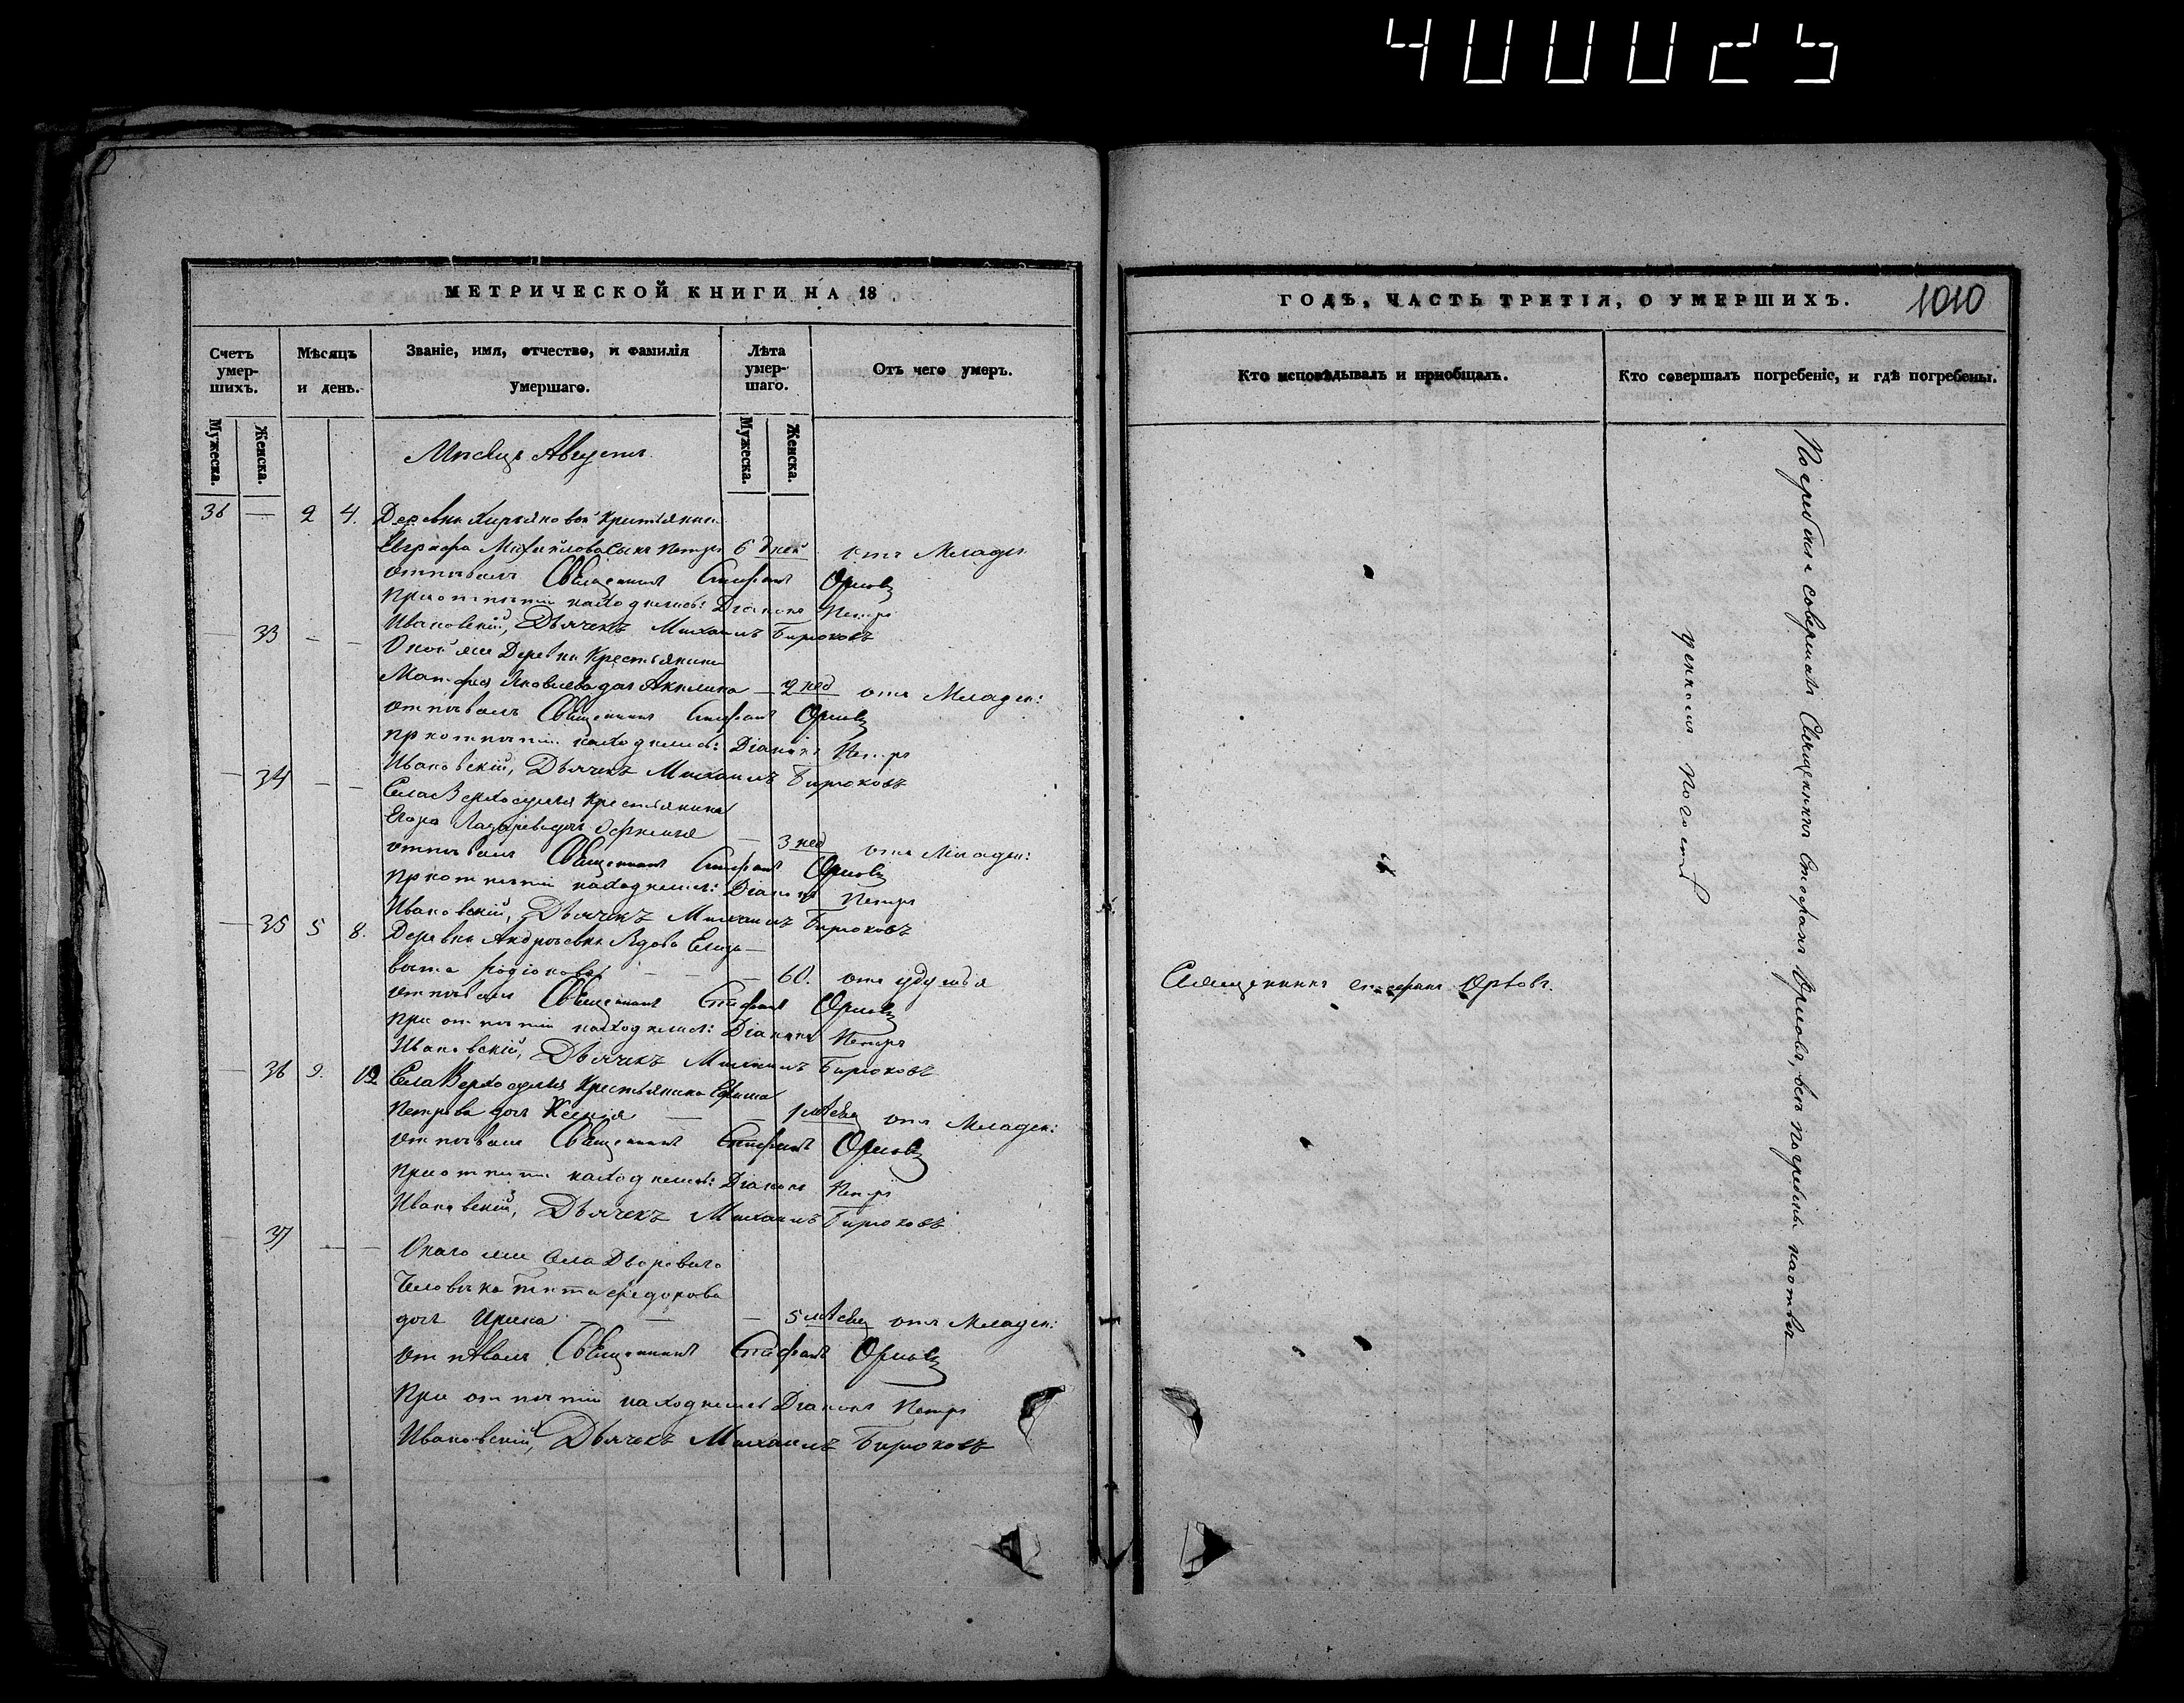 400025
МЕТРИЧЕСКОЙ КНИГИ НА 18
Счетъ умер-шихъ.
Мѣсяцъ и день.
Званіе, имя, отчество, и фамилія умершаго.
Лѣта умер-шаго.
Отъ чего умеръ.
Мужеска.
Женска.
Мужеска.
Женска.
Мѣсяцъ Августъ.
36 — 2 4. Деревни крестьянина
Евграфа Михайлова сынъ Петръ 6 дней отъ Младен
отпѣвалъ Священникъ Стефанъ Орловъ
При отпѣтіи находились: Діаконъ Петръ
Ивановскій, Дьячекъ Михаилъ Бирюковъ
— 33 — — Оной же Деревни Крестьянина
Матфея Яковлева дочь Акилина — 2 нед отъ Младен:
отпѣвалъ Священникъ Стефанъ Орловъ
при отпѣтіи находились: Діаконъ Петръ
Ивановскій, Дьячекъ Михаилъ Бирюковъ
— 34 — — Села крестьянина
Егора Лазарева дочь — 3 нед отъ Младен:
отпѣвалъ Священникъ Стефанъ Орловъ
при отпѣтіи находились: Діаконъ Петръ
Ивановскій, Дьячекъ Михаилъ Бирюковъ
— 35 5 8. Деревни Андреевки Вдова Елиза-
вета Родіонова — — — 60. отъ удушья
отпѣвалъ Священникъ Стефанъ Орловъ
при отпѣтіи находились: Діаконъ Петръ
Ивановскій, Дьячекъ Михаилъ Бирюковъ
— 36 9. 12 Села Крестьянина Ефима
Петрова дочь Ксенія — — 1 мѣсяц отъ Младен:
отпѣвалъ Священникъ Стефанъ Орловъ
При отпѣтіи находились: Діаконъ Петръ
Ивановскій, Дьячекъ Михаилъ Бирюковъ
— 37 — — Онаго же Села Двороваго
Человѣка Тита Федорова
дочь Ирина — — — 5 мѣсяц отъ Младен:
отпѣвалъ Священникъ Стефанъ Орловъ
При отпѣтіи находились Діаконъ Петръ
Ивановскій, Дьячекъ Михаилъ Бирюковъ
ГОДЪ, ЧАСТЬ ТРЕТІЯ, О УМЕРШИХЪ.
1010
Кто исповѣдывалъ и пріобщалъ.
Кто совершалъ погребеніе, и гдѣ погребены.
Священникъ Стефанъ Орловъ.
Погребеніе совершалъ Священникъ Стефанъ Орловъ, всѣ погребены на отвѣ
погостѣ